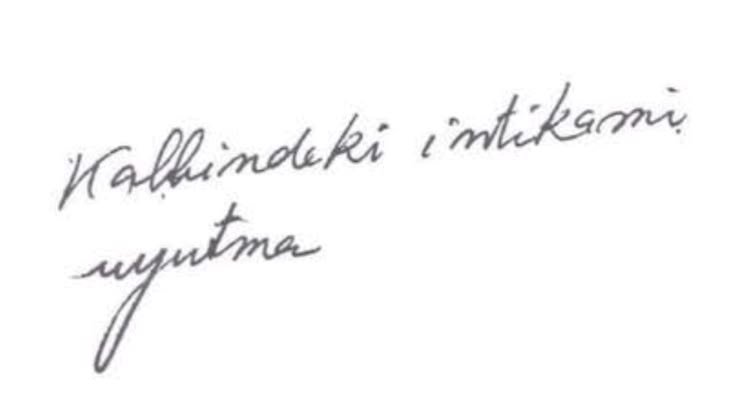 Kalbindeki intikami
uyutma